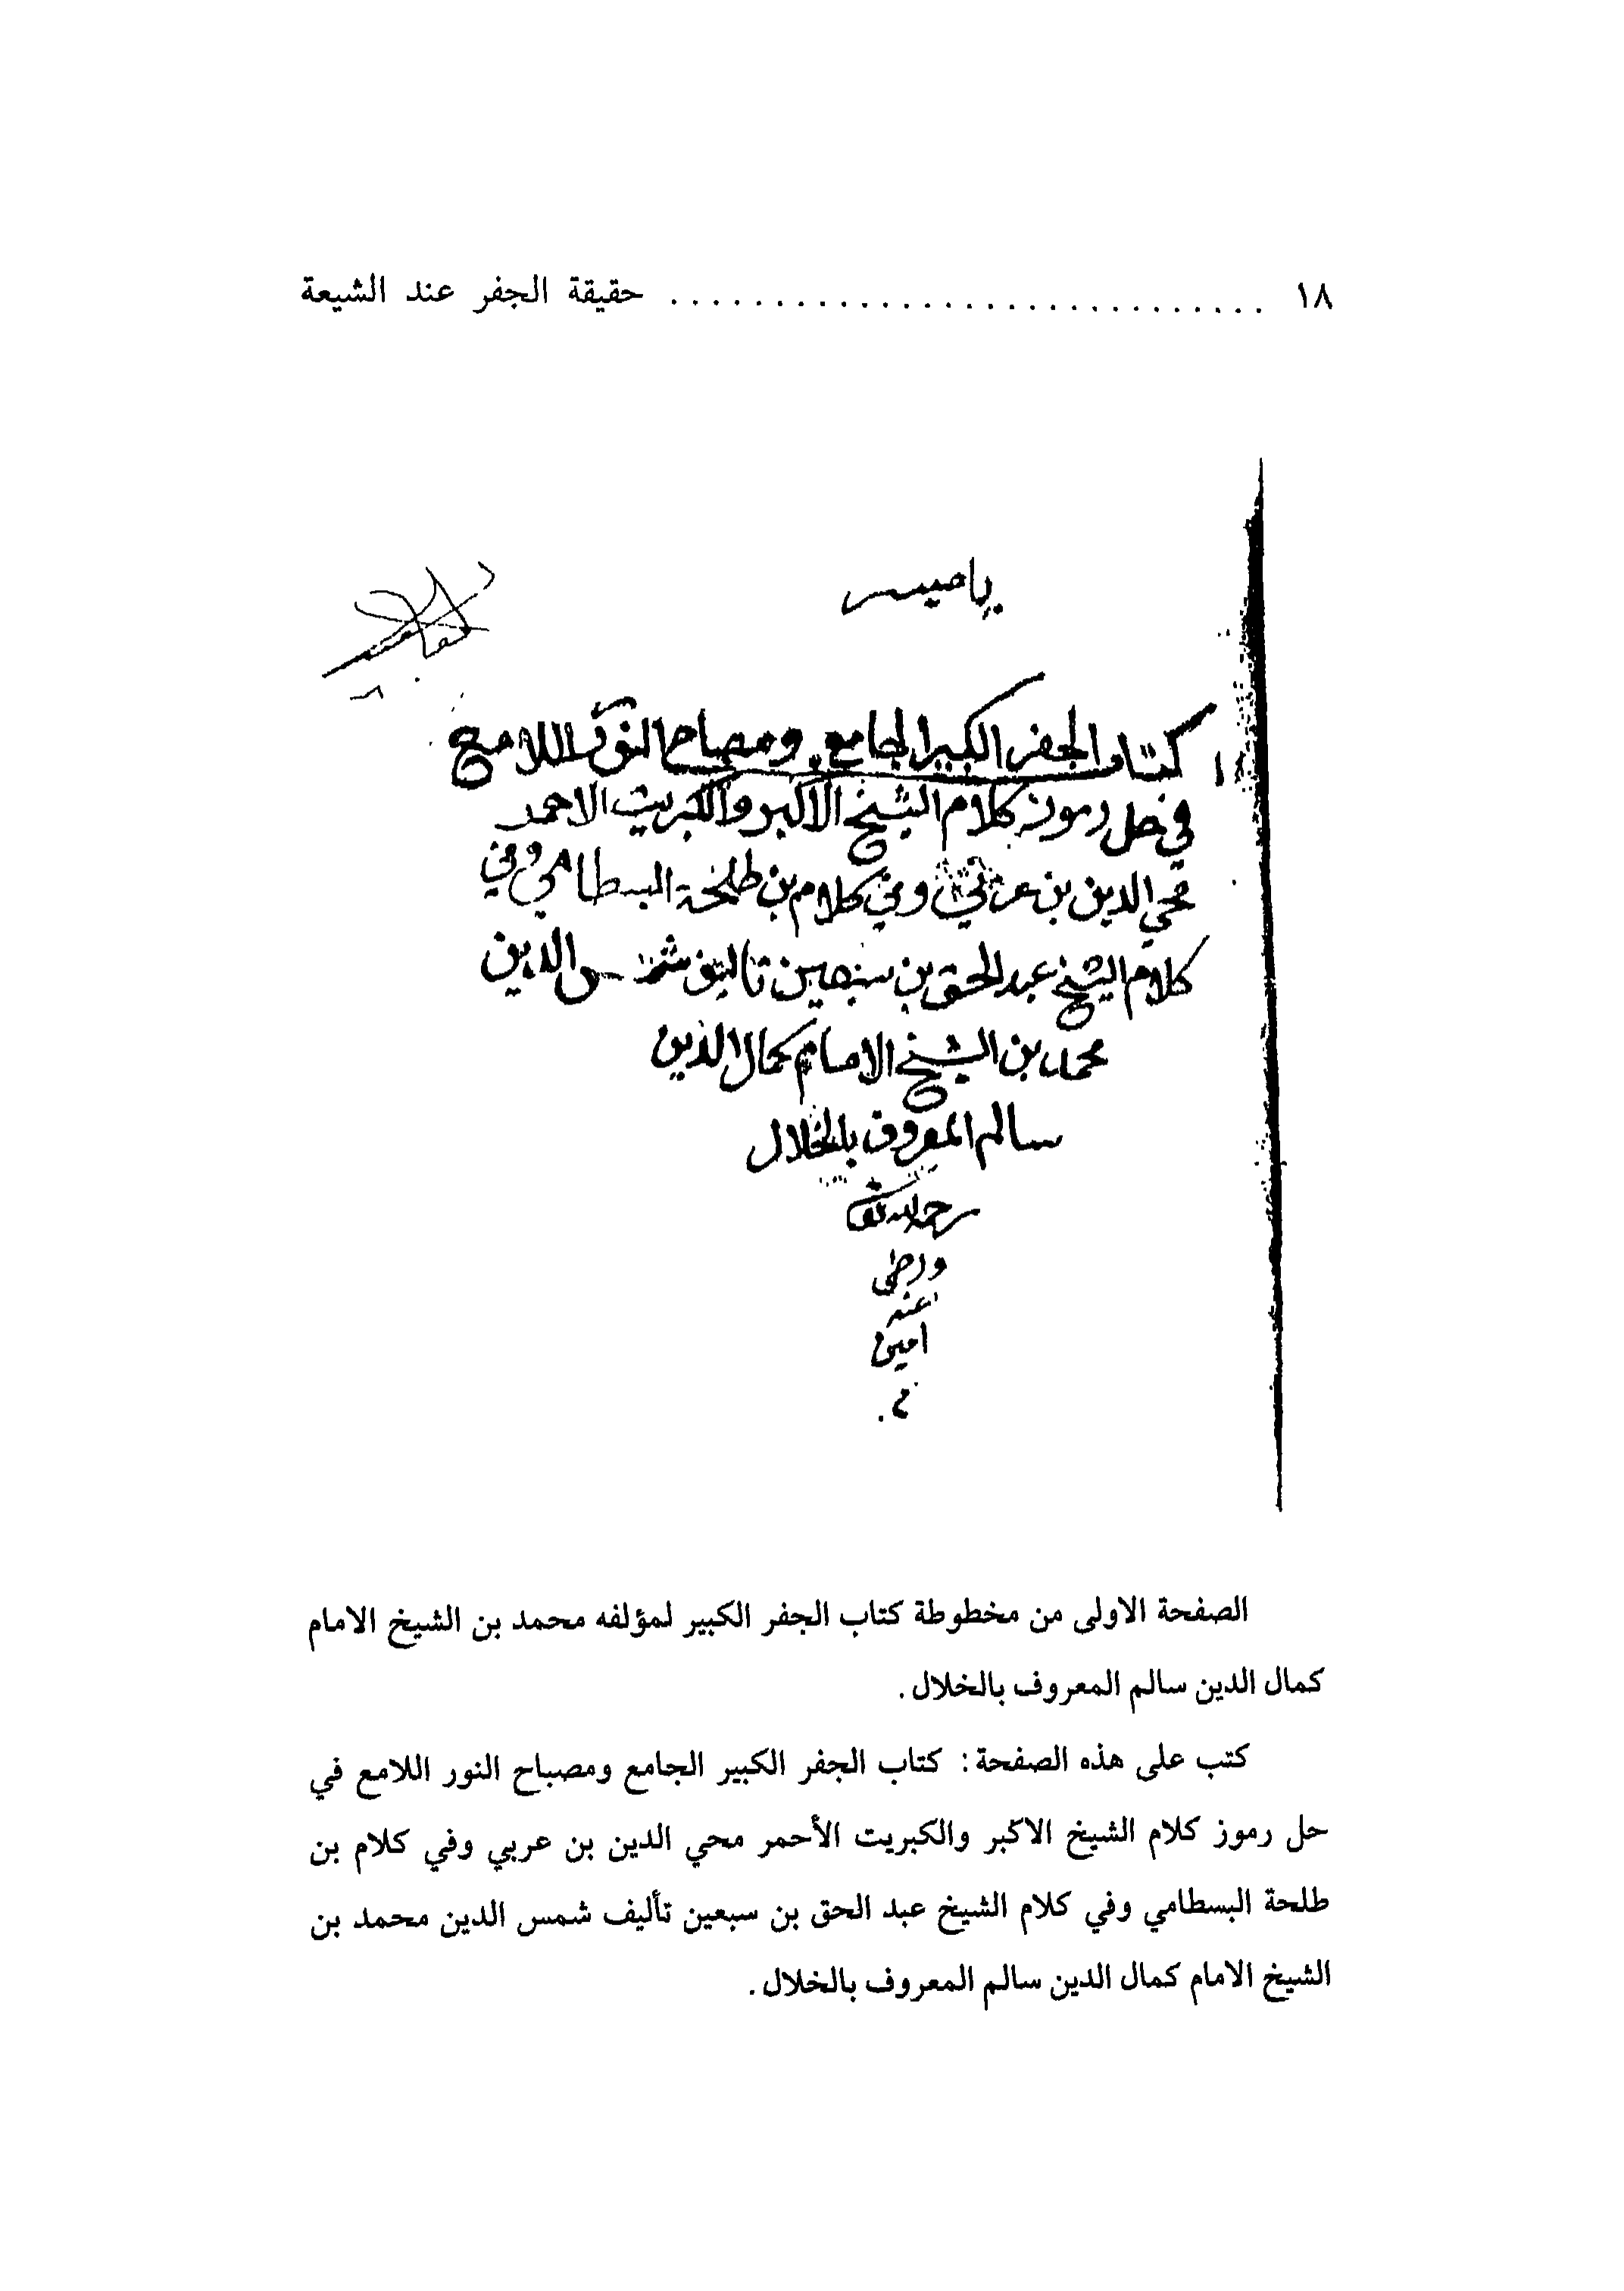 ١٨ . . . . . . . . . . . . . . . . . . . . . . . . . . . . . حقيقة الجفر عند الشيعة
ياميسر
كتاب الجفر الكبير الجامع ومصباح النور اللامع
في حل رموز كلام الشيخ الاكبر والكبريت الاحمر
محي الدين بن عربي وفي كلام بن طلحة البسطامي وفي
كلام الشيخ عبد الحق بن سبعين تاليف شمس الدين
محمد بن الشيخ الامام كمال الدين
سالم المعروف بالخلال
رحمه الله تعا
ورضى
عنه
امين
م
الصفحة الاولى من مخطوطة كتاب الجفر الكبير لمؤلفه محمد بن الشيخ الامام
كمال الدين سالم المعروف بالخلال.
كتب على هذه الصفحة: كتاب الجفر الكبير الجامع ومصباح النور اللامع في
حل رموز كلام الشيخ الاكبر والكبريت الأحمر محي الدين بن عربي وفي كلام بن
طلحة البسطامي وفي كلام الشيخ عبد الحق بن سبعين تأليف شمس الدين محمد بن
الشيخ الامام كمال الدين سالم المعروف بالخلال.